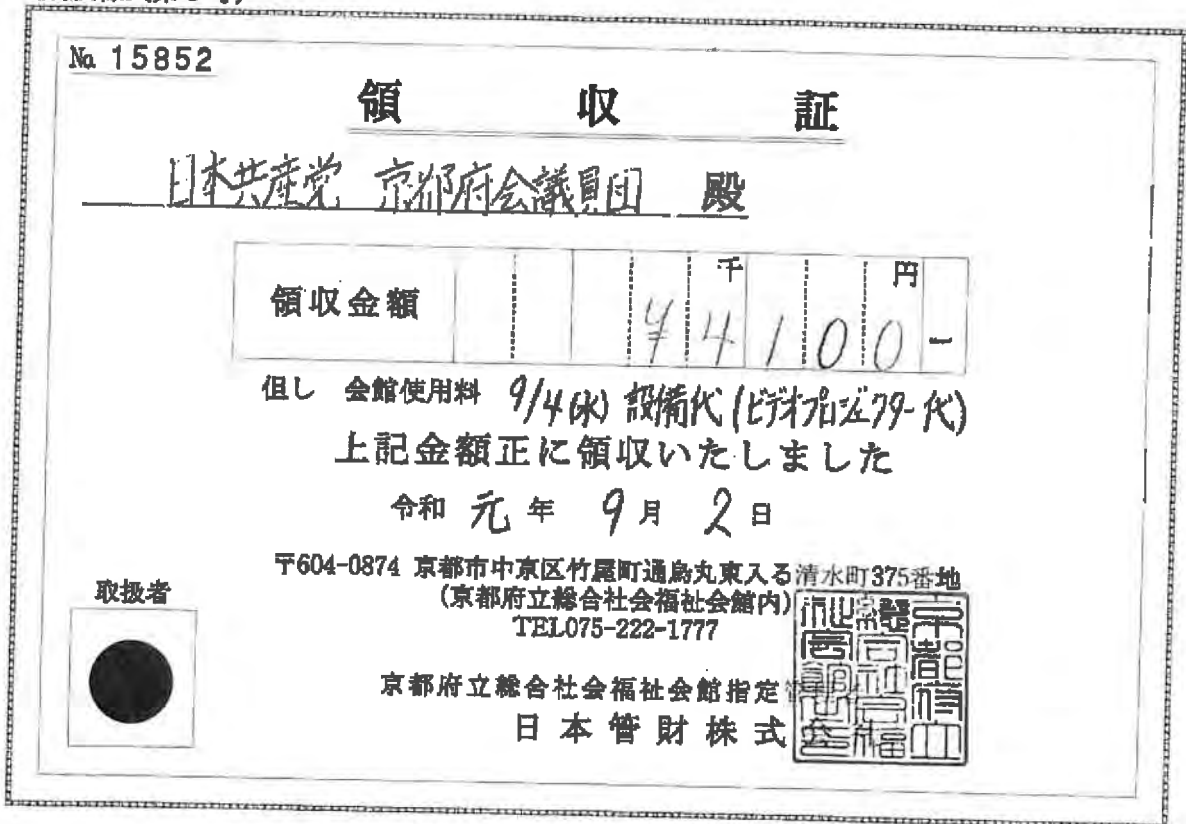 No. 15852
領収証
日本共産党 京都府会議員団 殿
千 円
領収金額 ¥4100-
但し 会館使用料 9/4(水) 設備代(ビデオプロジェクター代)
上記金額正に領収いたしました
令和 元 年 9 月 2 日
〒604-0874 京都市中京区竹屋町通烏丸東入る清水町375番地
(京都府立総合社会福祉会館内)
TEL075-222-1777
取扱者
京都府立総合社会福祉会館指定
日本管財株式